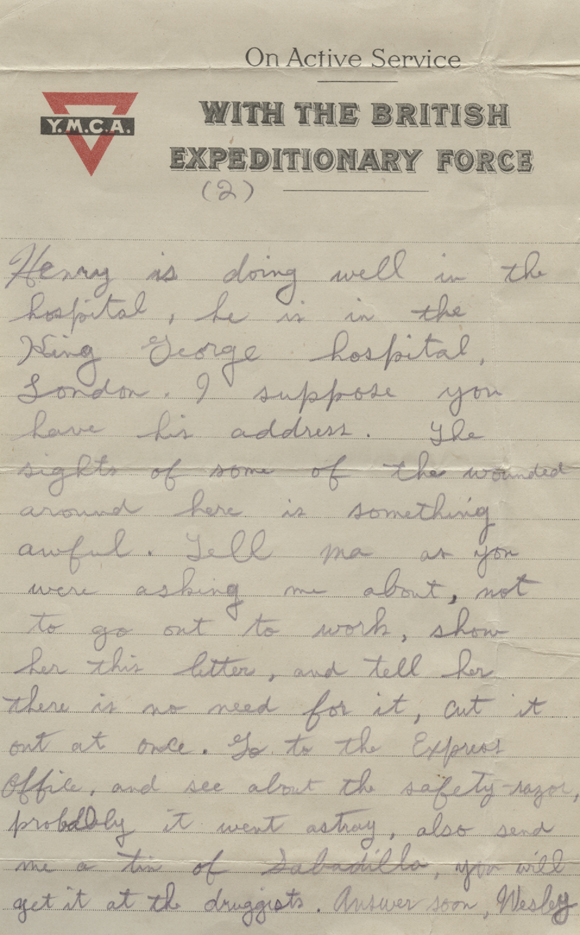 On Active Service
WITH THE BRITISH
Y.M.C.A.
EXPEDITIONARY FORCE
(2)
Henry is doing well in the
hospital, he is in the
King George hospital,
London. I suppose you
have his address. The
sights of some of the wounded
around here is something
awful. Tell ma as you
were asking me about, not
to go out to work, show
her this letter, and tell her
there is no need for it, cut it
out at once. Go to the Express
Office, and see about the safety-razor,
probably it went astray, also send
me a tin of Sabadilla, you will
get it at the druggists. Answer soon, Wesley